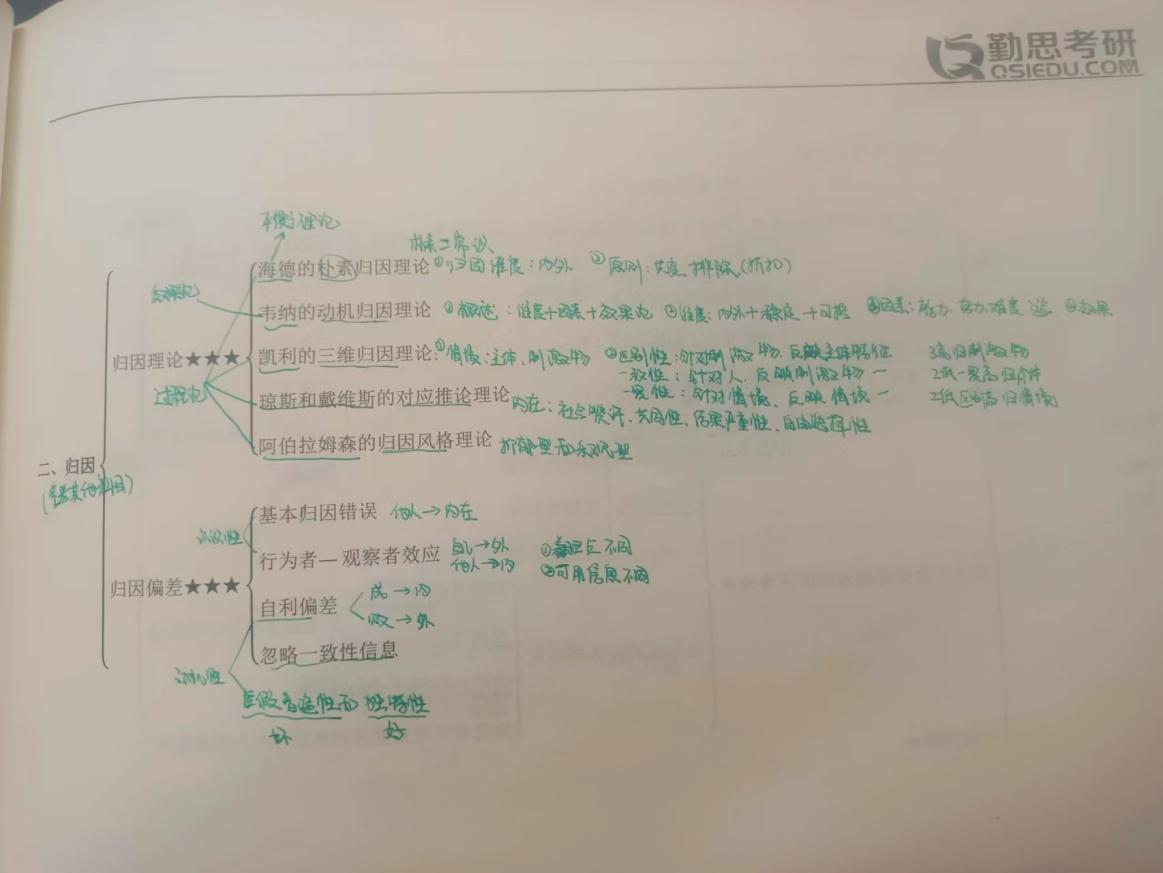 勤思考研
QSIEDU.COM
平衡理论
朴素=常识
海德的朴素归因理论 ①归因维度：内外 ②原则：共变、排除（折扣）
韦纳的动机归因理论 ①概述：维度+因素+效果论 ②维度：内外+稳定+可控 ③因素：能力 努力 难度 运 ④效果
归因理论★★★
凯利的三维归因理论：①情境：主体、刺激物 ②区别性：针对刺激物、反映主体特征 3高归刺激物
一致性：针对人、反映刺激物 2低一高归个体
一贯性：针对情境、反映情境 2低区高归情境
过程论
琼斯和戴维斯的对应推论理论 内在：社会赞许、共同性、结果严重性、自由选择性
阿伯拉姆森的归因风格理论 抑郁型 乐观型
二、归因
基本归因错误 他人→内在
认识性
行为者—观察者效应 自己→外 ①
他人→内 ②可用信息不同
归因偏差★★★
自利偏差 成→内
败→外
忽略一致性信息
动机性
虚假普遍性 独特性
坏 好